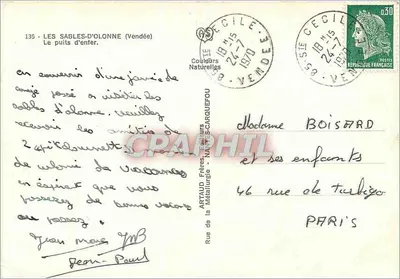 135 - LES SABLES-D'OLONNE (Vendée)
Le puits d'enfer.
Couleurs
Naturelles
85 STE CECILE - VENDEE
18H15
24-7
1970
85 STE CECILE - VENDEE
18H15
24-7
1970
0,30
POSTES
REPUBLIQUE FRANÇAISE
en souvenir d'une journée de
congé passé en visiter les
sables d'olonne, veuillez
recevoir les amitiés de
2
de colonie de vacances
en espérant que vous
passerez de bonnes vacances
au
Jean Marc JMB
Jean-Paul
ARTAUD Frères, Editeurs
Rue de la Métallurgie - NANTES-CARQUEFOU
Madame BOISARD
et ses enfants
46 rue de Turbigo
PARIS
CPARAMA